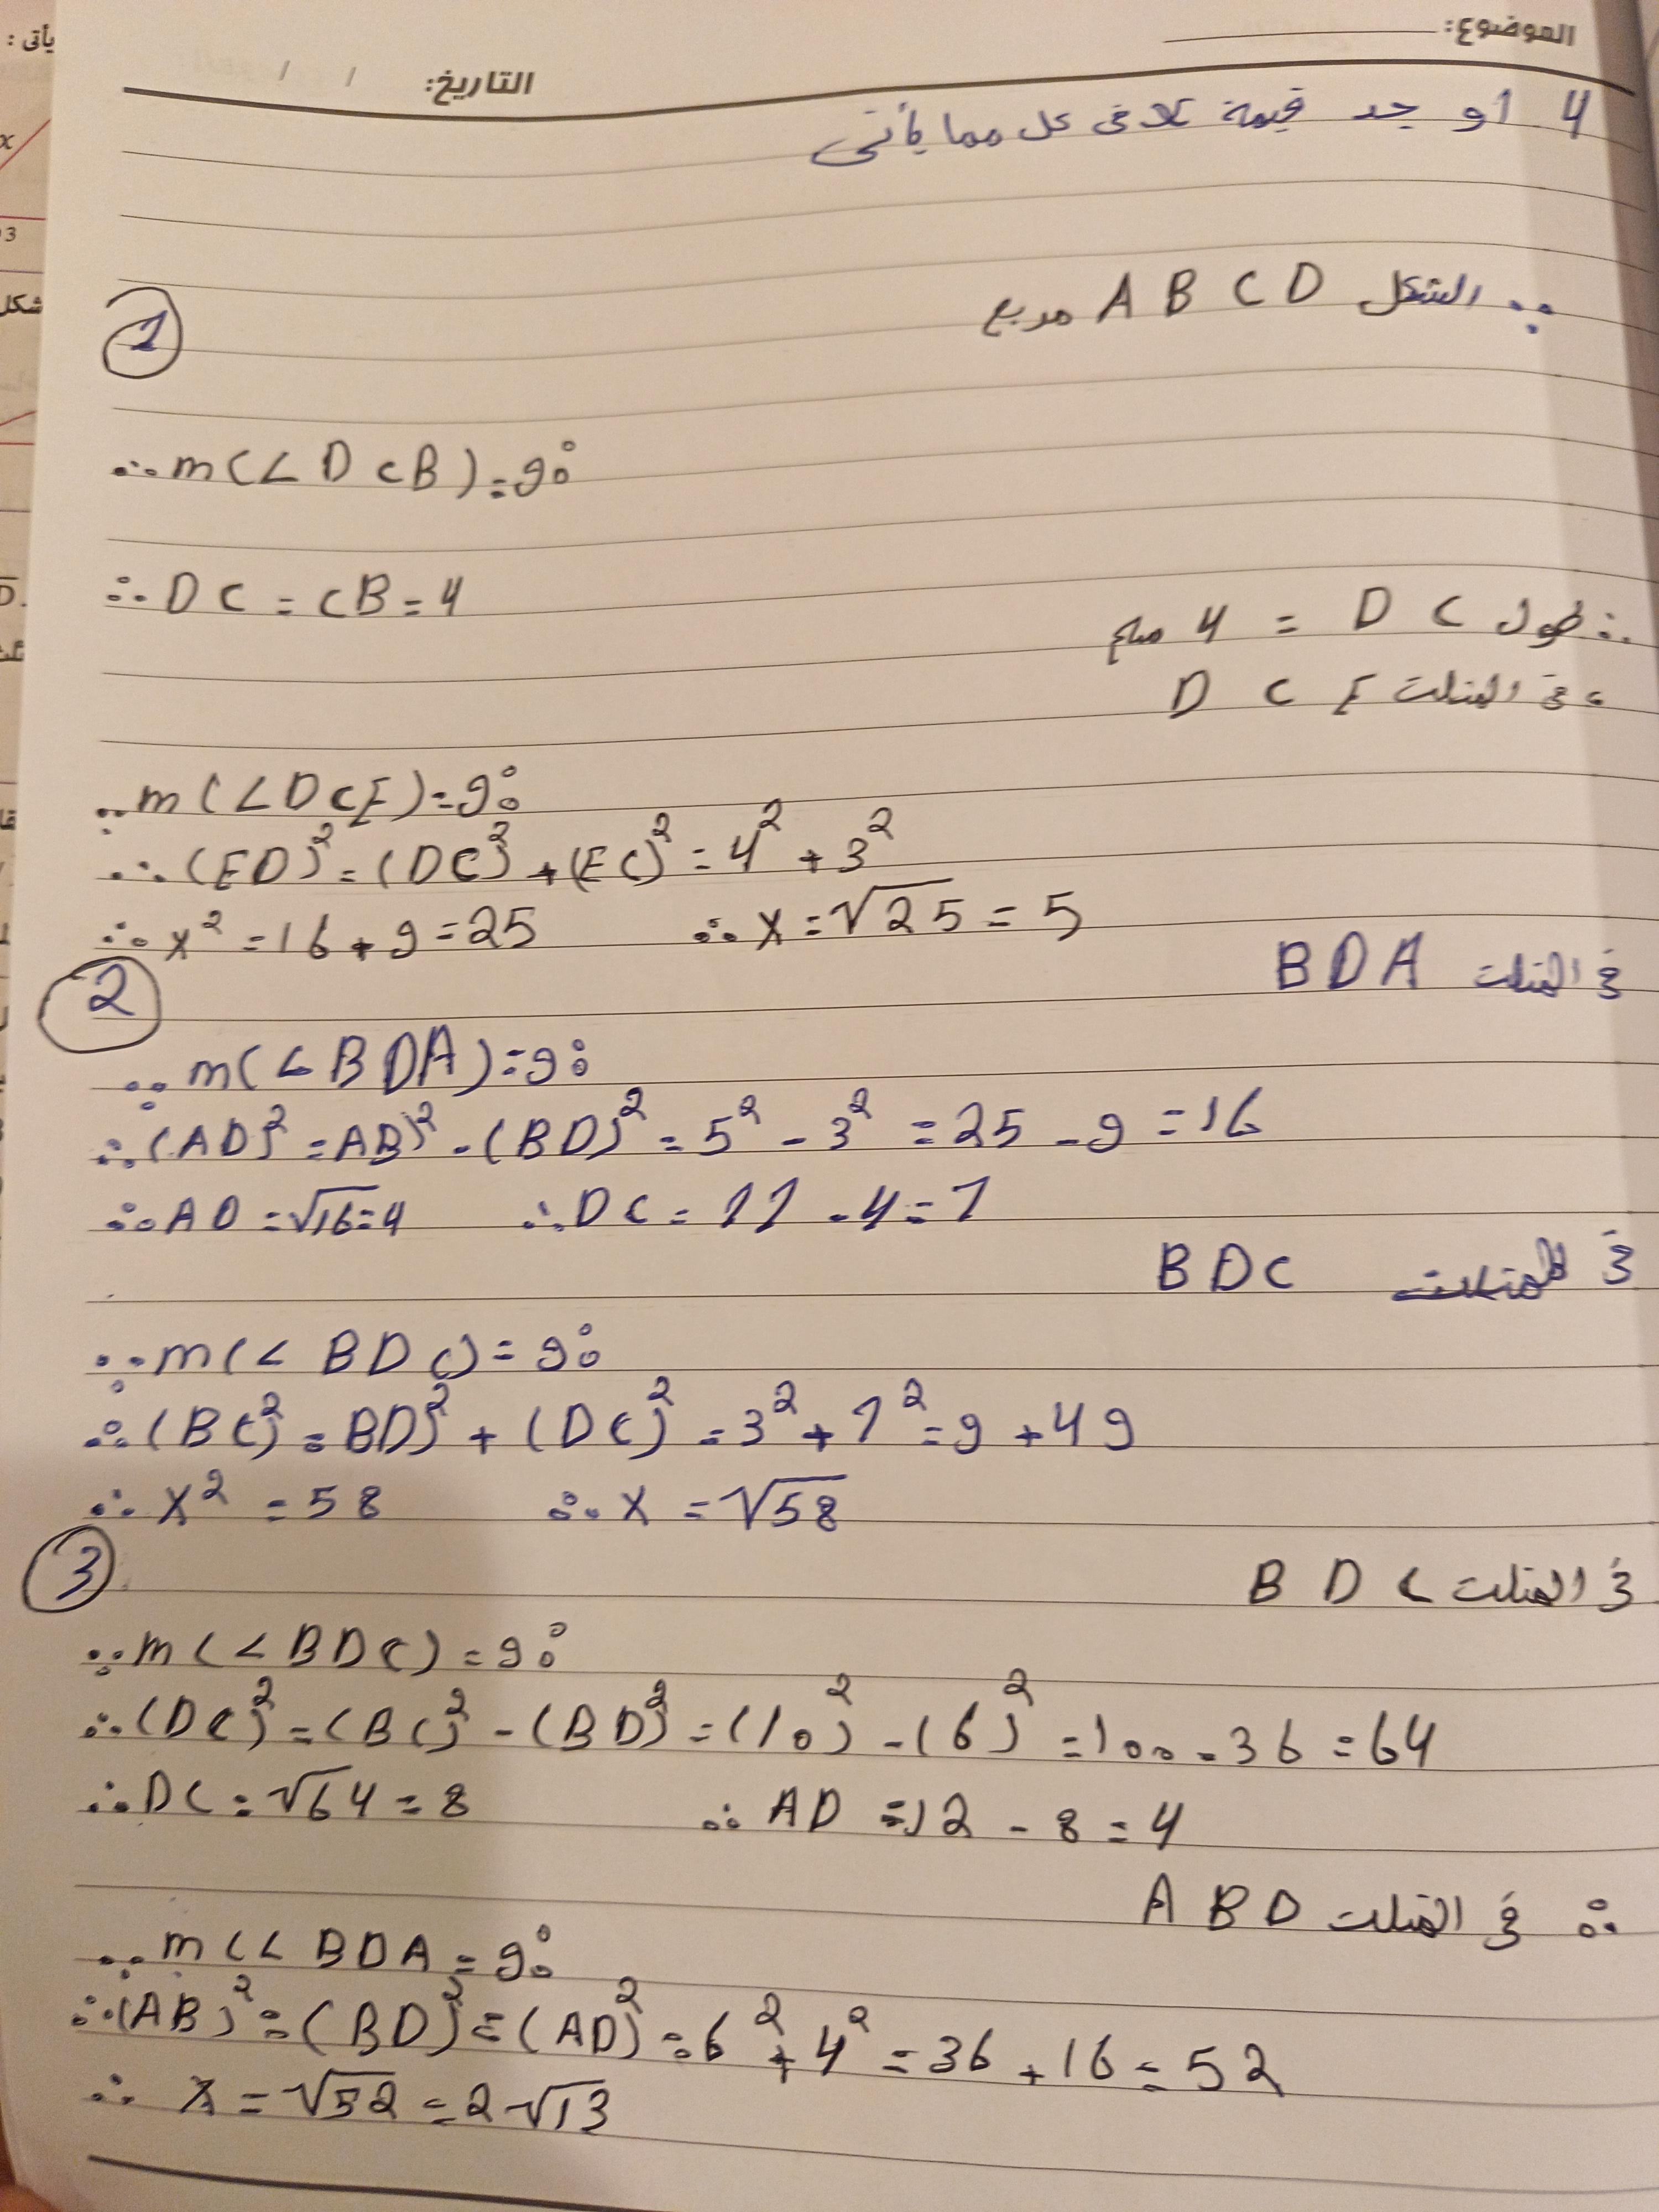 الموضوع:
التاريخ: / /
يأتى :
4 أوجد قيمة x فى كل مما يأتى
∵ الشكل A B C D مربع
1
∴ m(∠DCB) = 90°
∴ DC = CB = 4
∴ طول DC = 4 سم
، فى المثلث D C E
∵ m(∠DCE) = 90°
∴ (ED)² = (DC)² + (EC)² = 4² + 3²
∴ x² = 16 + 9 = 25 ∴ x = √25 = 5
فى المثلث BDA
2
∵ m(∠BDA) = 90°
∴ (AD)² = AB)² - (BD)² = 5² - 3² = 25 - 9 = 16
∴ AD = √16 = 4 ∴ DC = 11 - 4 = 7
فى المثلث BDC
∵ m(∠BDC) = 90°
∴ (BC)² = BD)² + (DC)² = 3² + 7² = 9 + 49
∴ x² = 58 ∴ x = √58
3
فى المثلث BDC
∵ m(∠BDC) = 90°
∴ (DC)² = (BC)² - (BD)² = (10)² - (6)² = 100 - 36 = 64
∴ DC = √64 = 8 ∴ AD = 12 - 8 = 4
∴ فى المثلث ABD
∵ m(∠BDA = 90°
∴ (AB)² = (BD)² = (AD)² = 6² + 4² = 36 + 16 = 52
∴ x = √52 = 2√13